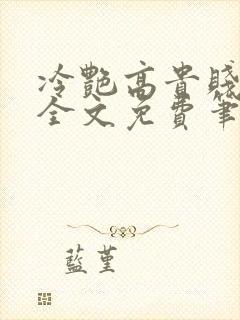 冷艷高貴賤
全文免費筆
藍堇